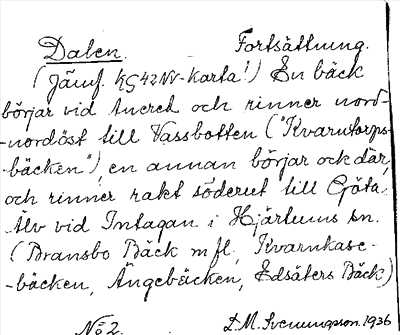 Dalen. Fortsättning.
(Jämf. KG42NV-karta!) En bäck
börjar vid tneret och rinner nord-
-nordöst till Vassbotten ("Kvarntorps-
bäcken"), en annan börjar ock där,
och rinner rakt söderut till Göta
Älv vid Intagan i Hjärtums sn.
(Bransbo Bäck m fl, Kvarnkase-
-bäcken, Ängebäcken, Edsäters Bäck)
No 2. D.M. Svenungson. 1936